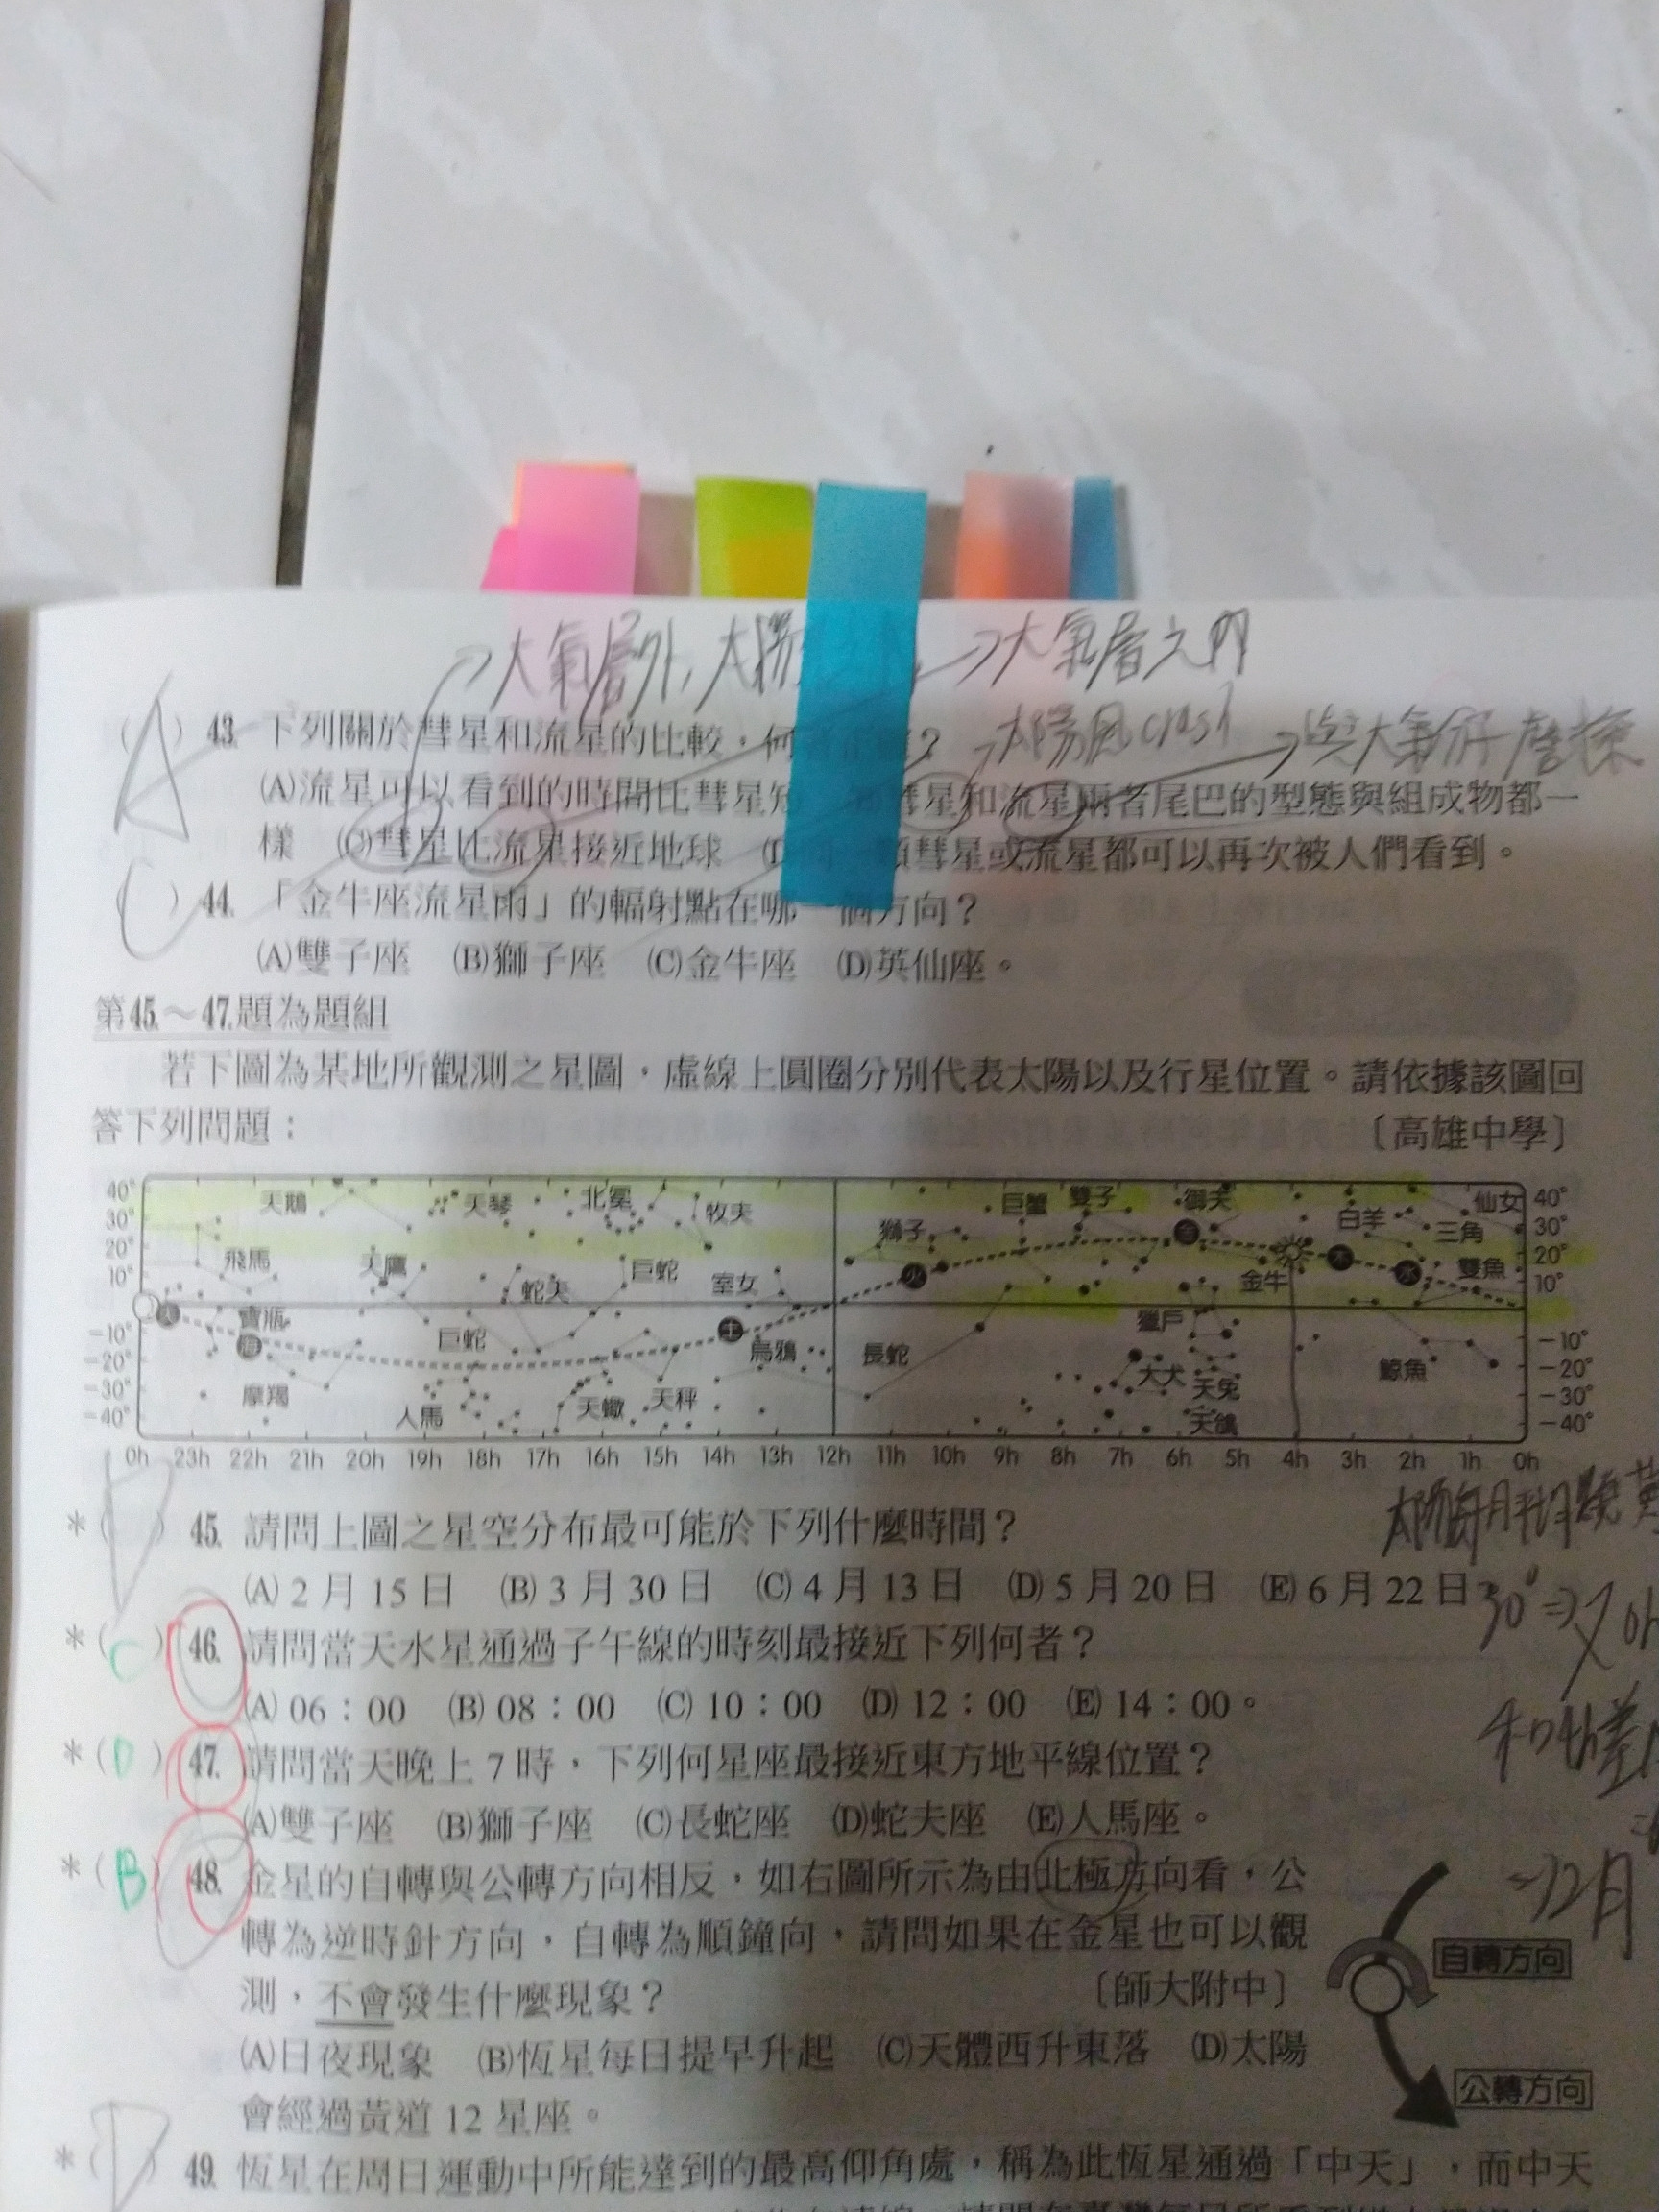 →大氣層外，太 →大氣層之內
(A) 43. 下列關於彗星和流星的比較，何 ？ 太陽風 →與大氣 摩擦
(A)流星可以看到的時間比彗星 彗星和流星兩者尾巴的型態與組成物都一
樣 (C)彗星比流星接近地球 (D) 顆彗星或流星都可以再次被人們看到。
(C) 44. 「金牛座流星雨」的輻射點在哪一個方向？
(A)雙子座 (B)獅子座 (C)金牛座 (D)英仙座。
第45.～47.題為題組
若下圖為某地所觀測之星圖，虛線上圓圈分別代表太陽以及行星位置。請依據該圖回
答下列問題： 〔高雄中學〕
40° 天鵝 天琴 北冕 牧夫 巨蟹 雙子 御夫 仙女 40°
30° 獅子 白羊 三角 30°
20° 飛馬 天鷹 蛇夫 巨蛇 室女 火 金牛 木 水 雙魚 20°
10° 10°
寶瓶 海 巨蛇 土 烏鴉 長蛇 獵戶
－10° －10°
－20° 大犬 天兔 鯨魚 －20°
－30° 摩羯 －30°
－40° 人馬 天蠍 天秤 天鴿 －40°
0h 23h 22h 21h 20h 19h 18h 17h 16h 15h 14h 13h 12h 11h 10h 9h 8h 7h 6h 5h 4h 3h 2h 1h 0h
*(D) 45. 請問上圖之星空分布最可能於下列什麼時間？
(A) 2 月 15 日 (B) 3 月 30 日 (C) 4 月 13 日 (D) 5 月 20 日 (E) 6 月 22 日
30°⇒
*(C) 46. 請問當天水星通過子午線的時刻最接近下列何者？
(A) 06：00 (B) 08：00 (C) 10：00 (D) 12：00 (E) 14：00。
*(D) 47. 請問當天晚上 7 時，下列何星座最接近東方地平線位置？
(A)雙子座 (B)獅子座 (C)長蛇座 (D)蛇夫座 (E)人馬座。
*(B) 48. 金星的自轉與公轉方向相反，如右圖所示為由北極方向看，公
轉為逆時針方向，自轉為順鐘向，請問如果在金星也可以觀
測，不會發生什麼現象？ 〔師大附中〕
(A)日夜現象 (B)恆星每日提早升起 (C)天體西升東落 (D)太陽
會經過黃道 12 星座。
自轉方向
公轉方向
*(D) 49. 恆星在周日運動中所能達到的最高仰角處，稱為此恆星通過「中天」，而中天